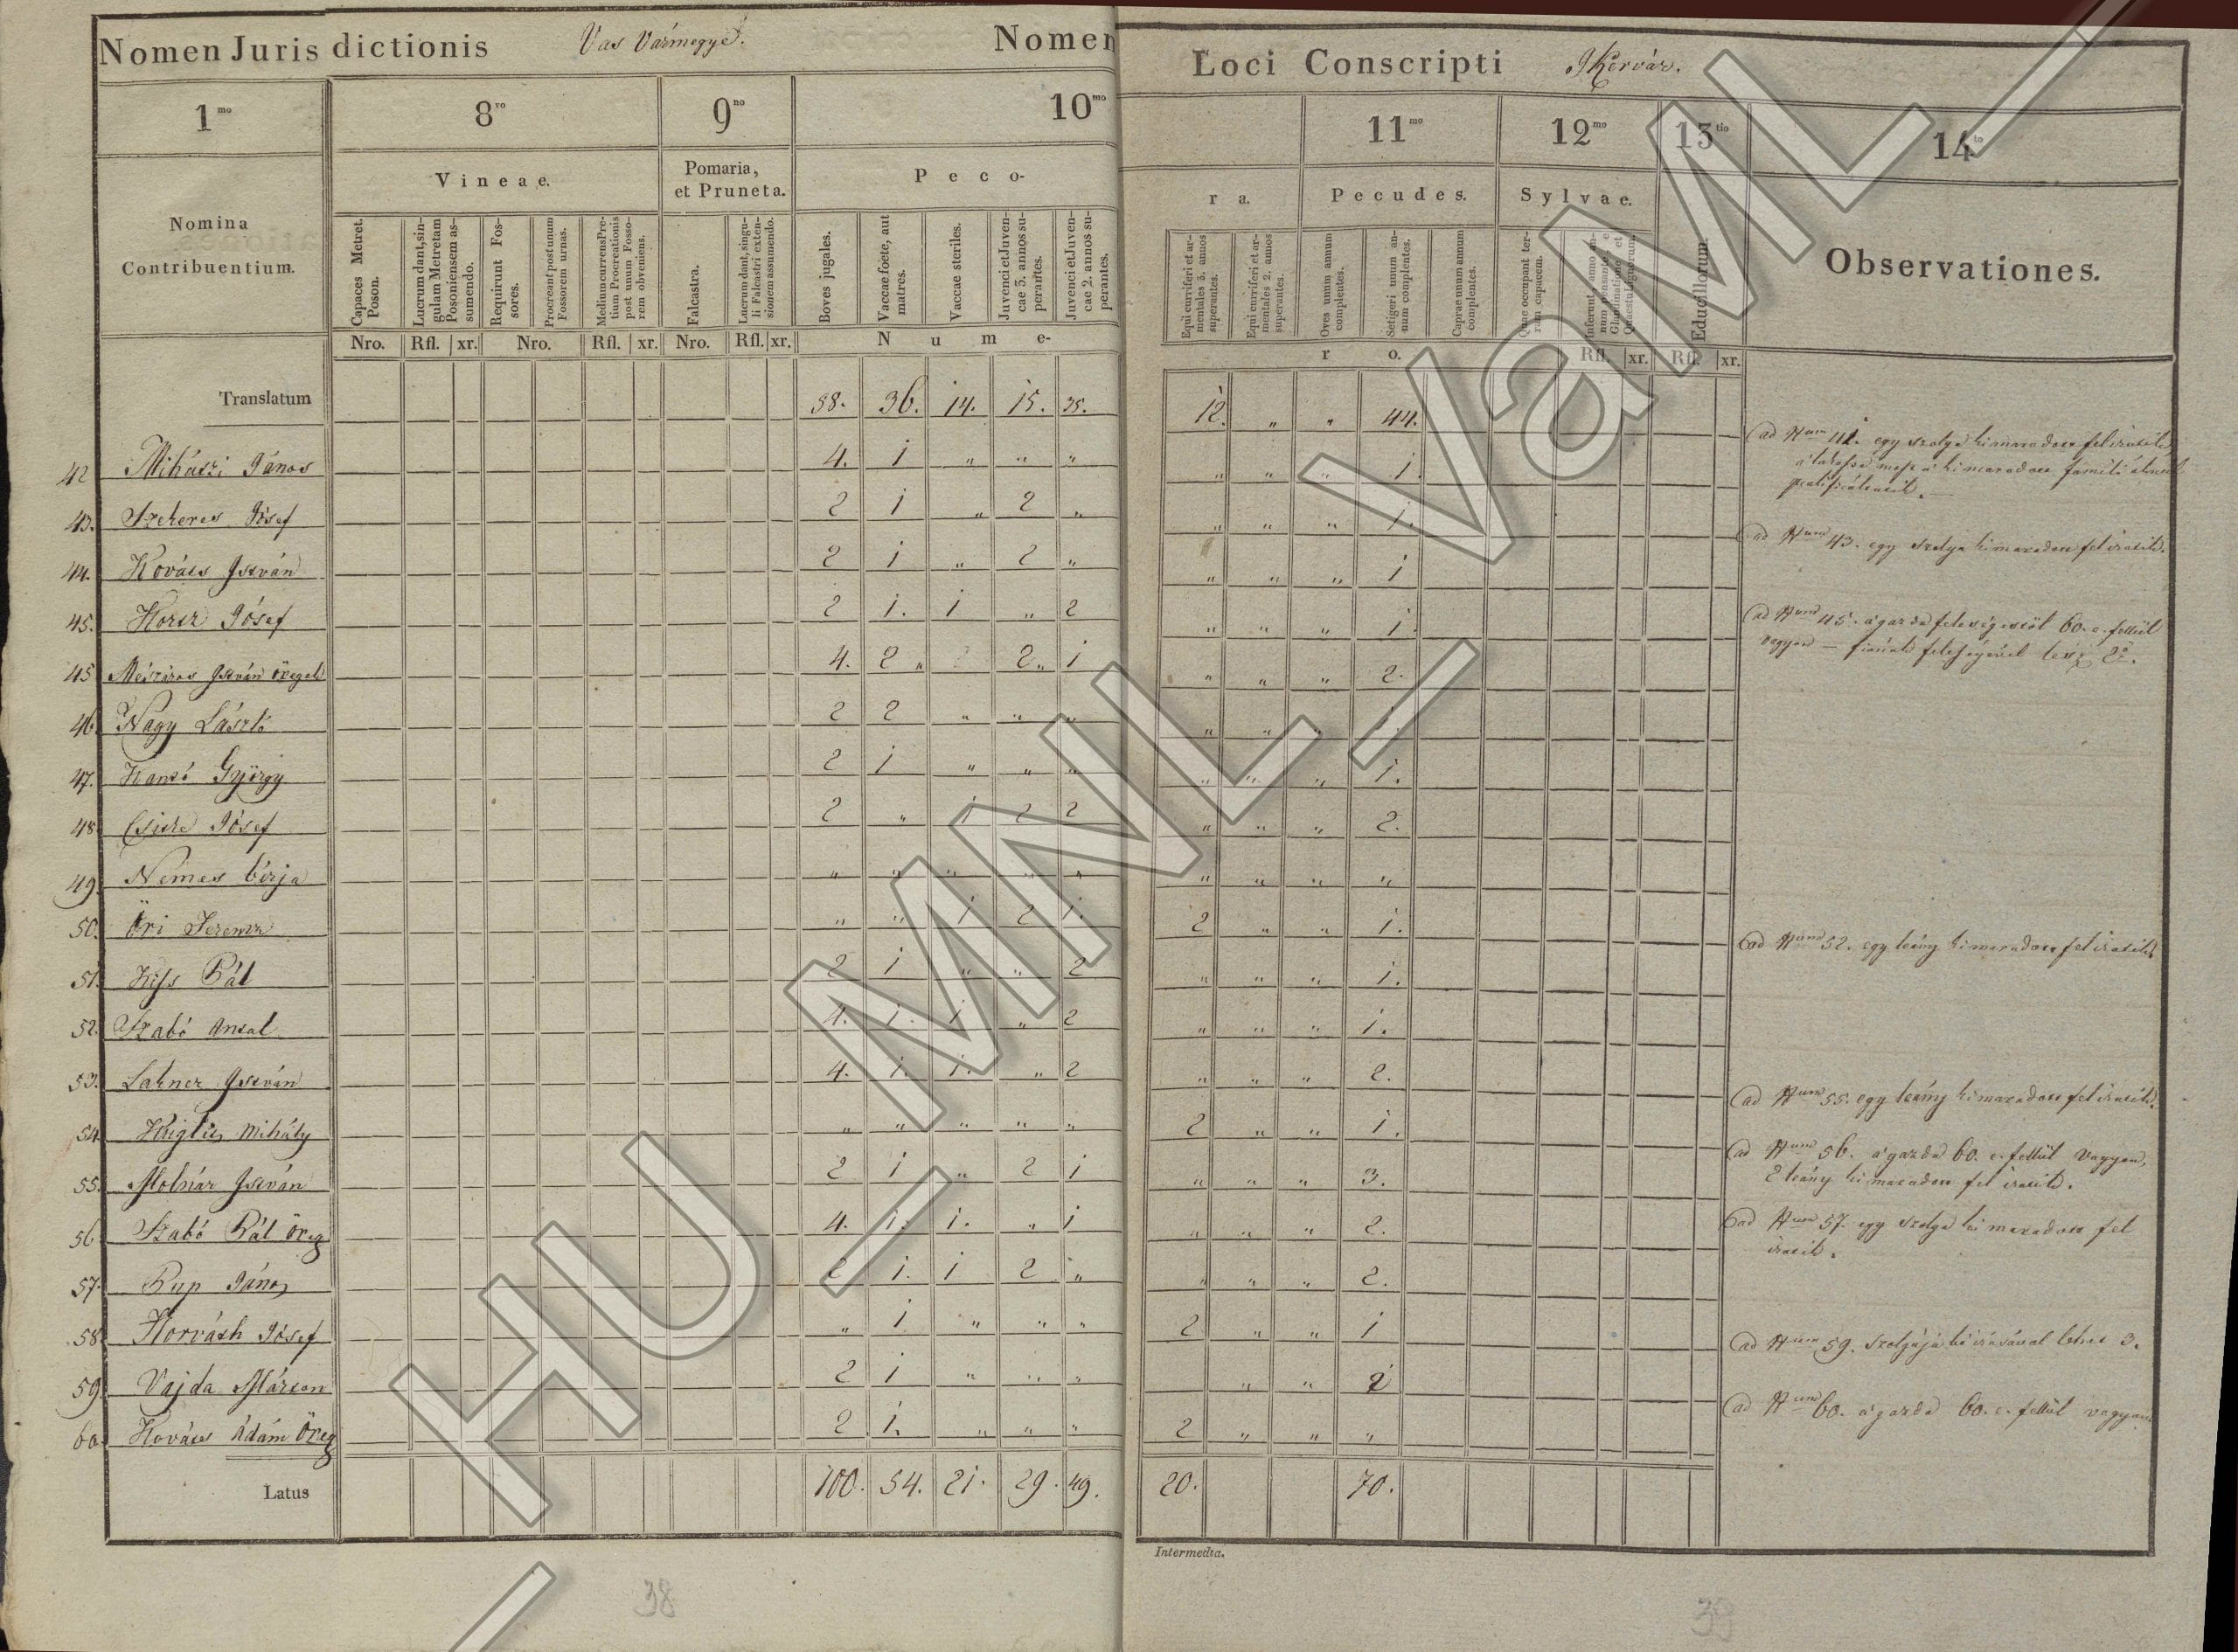 Nomen Juris dictionis Vas Vármegye. Nomen Loci Conscripti Ikervár.
1mo 8vo 9no 10mo 11mo 12mo 13tio 14to
Nomina Contribuentium.
Vineae.
Pomaria, et Pruneta.
Peco-
ra.
Pecudes.
Sylvae.
Educillorum.
Observationes.
Capaces Metret. Poson.
Lucrum dant, singulam Metretam Posoniensem assumendo.
Requirunt Fossores.
Procreant post unum Fossorem urnas.
Medium currens Pretium Procreationis post unum Fossorem obveniens.
Falcastra.
Lucrum dant, singuli Falcastri extensionem assumendo.
Boves jugales.
Vaccae foete, aut matres.
Vaccae steriles.
Juvenci et Juvencae 3. annos superantes.
Juvenci et Juvencae 2. annos superantes.
Equi curriferi et armentales 3. annos superantes.
Equi curriferi et armentales 2. annos superantes.
Oves unum annum complentes.
Setigeri unum annum complentes.
Caprae unum annum complentes.
Quae occupant terram capacem.
Nro. Rfl. xr. Nro. Rfl. xr. Nro. Rfl. xr. N u m e- r o. Rfl. xr. Rfl. xr.
Translatum 58. 36. 14. 15. 35. 12. „ „ 44.
42 Mihászi János 4. 1 „ „ „ „ „ „ 1.
43. Szekeres Jósef 2 1 „ 2 „ „ „ „ 1.
44. Kovács István 2 1 „ 2 „ „ „ „ 1
45. Horsz Jósef 2 1. 1 „ 2 „ „ „ 1.
45 Mészáros István öregeb 4. 2 „ 2 „ 1 „ „ „ 2.
46. Nagy László 2 2 „ „ „ „ „
47. György 2 1 „ „ „ „ „ „ 1.
48 Jósef 2 „ 1 2 2 „ „ „ 2.
49 Nemes birja „ „ „ „ „ „ „ „ „
50. Öri Ferencz „ „ 1 2 1. 2 „ „ 1.
51. Kiss Pál 2 1 „ „ 2 „ „ „ 1.
52. Szabó Antal 4. 1. 1 „ 2 „ „ „ 1.
53. Lakner István 4. 1. 1. „ 2 „ „ „ 2.
54. Mihály „ „ „ „ „ 2 „ „ 1.
55. Molnár István 2 1 „ 2 1 „ „ „ 3.
56 Szabó Pál Öreg 4. 1. 1. „ 1 „ „ „ 2.
57. Pup János 2 1. 1 2 „ „ „ „ 2.
58. Horváth Jósef „ 1 „ „ „ 2 „ „ 1
59. Vajda Márton 2 1 „ „ „ „ „ 2
60. Kovács Ádám Öreg 2 1. „ „ „ 2 „ „ „
Latus 100. 54. 21. 29. 49. 20. 70.
ad Num 41. egy szolga kimaradott feliratik
ad Num 43. egy szolga kimaradott feliratik.
ad Num 45. a' gazda feleségestöl 60. e. fellül
vagyon — fiának feleségével lesz 2.
ad Num 52. egy leány kimaradott feliratik.
ad Num 55. egy leány kimaradott feliratik.
ad Num 56. a' gazda 60. e. fellül vagyon,
2 leány kimaradott fel iratik.
ad Num 57. egy szolga kimaradott fel
iratik.
ad Num 59. szolgája lehet 3.
ad Num 60. a' gazda 60. e. fellül vagyon
Intermedia.
38
39
HU_MNL_VaML_